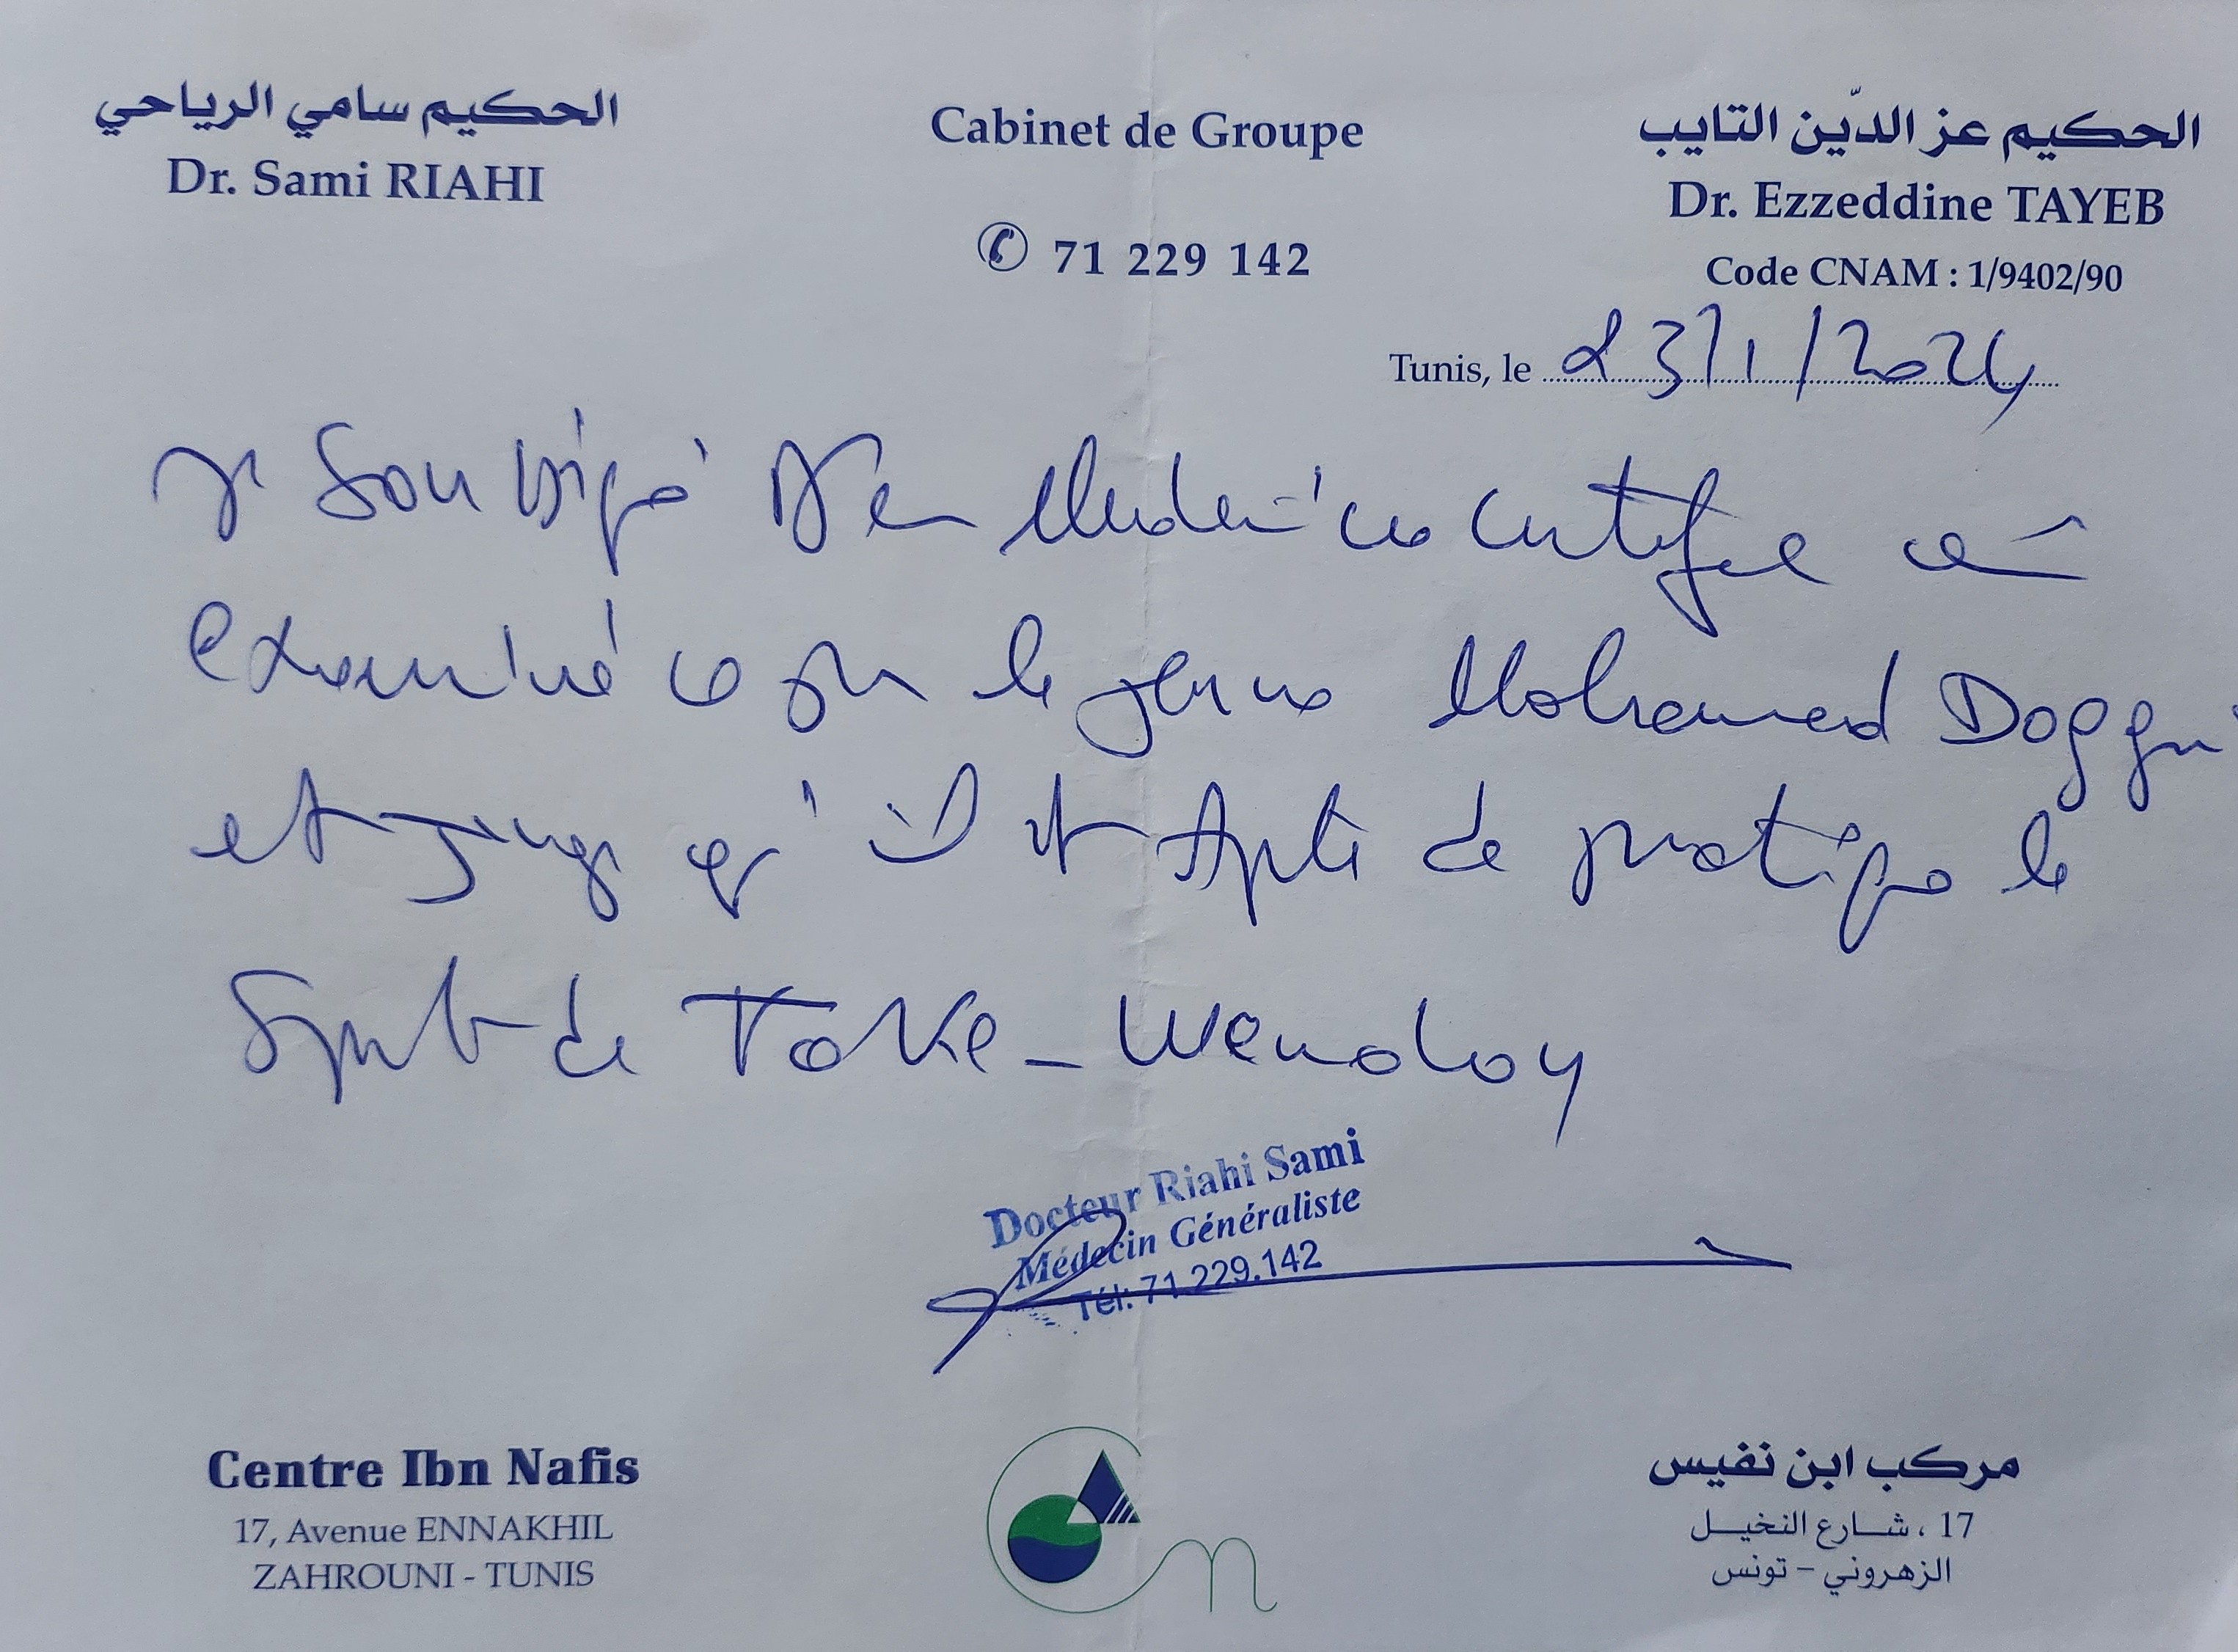 الحكيم سامي الرياحي
Dr. Sami RIAHI
Cabinet de Groupe
✆ 71 229 142
الحكيم عز الدّين التايب
Dr. Ezzeddine TAYEB
Code CNAM : 1/9402/90
Tunis, le 23/1/2024
Je soussigné Dr en Médecine certifie avoir
examiné ce jour le jeune Mohamed Doggui
et juge qu'il est Apte de pratiquer le
Sport de Take-Wendoy
Docteur Riahi Sami
Médecin Généraliste
Tél: 71.229.142
Centre Ibn Nafis
17, Avenue ENNAKHIL
ZAHROUNI - TUNIS
مركب ابن نفيس
17 ، شارع النخيل
الزهروني - تونس